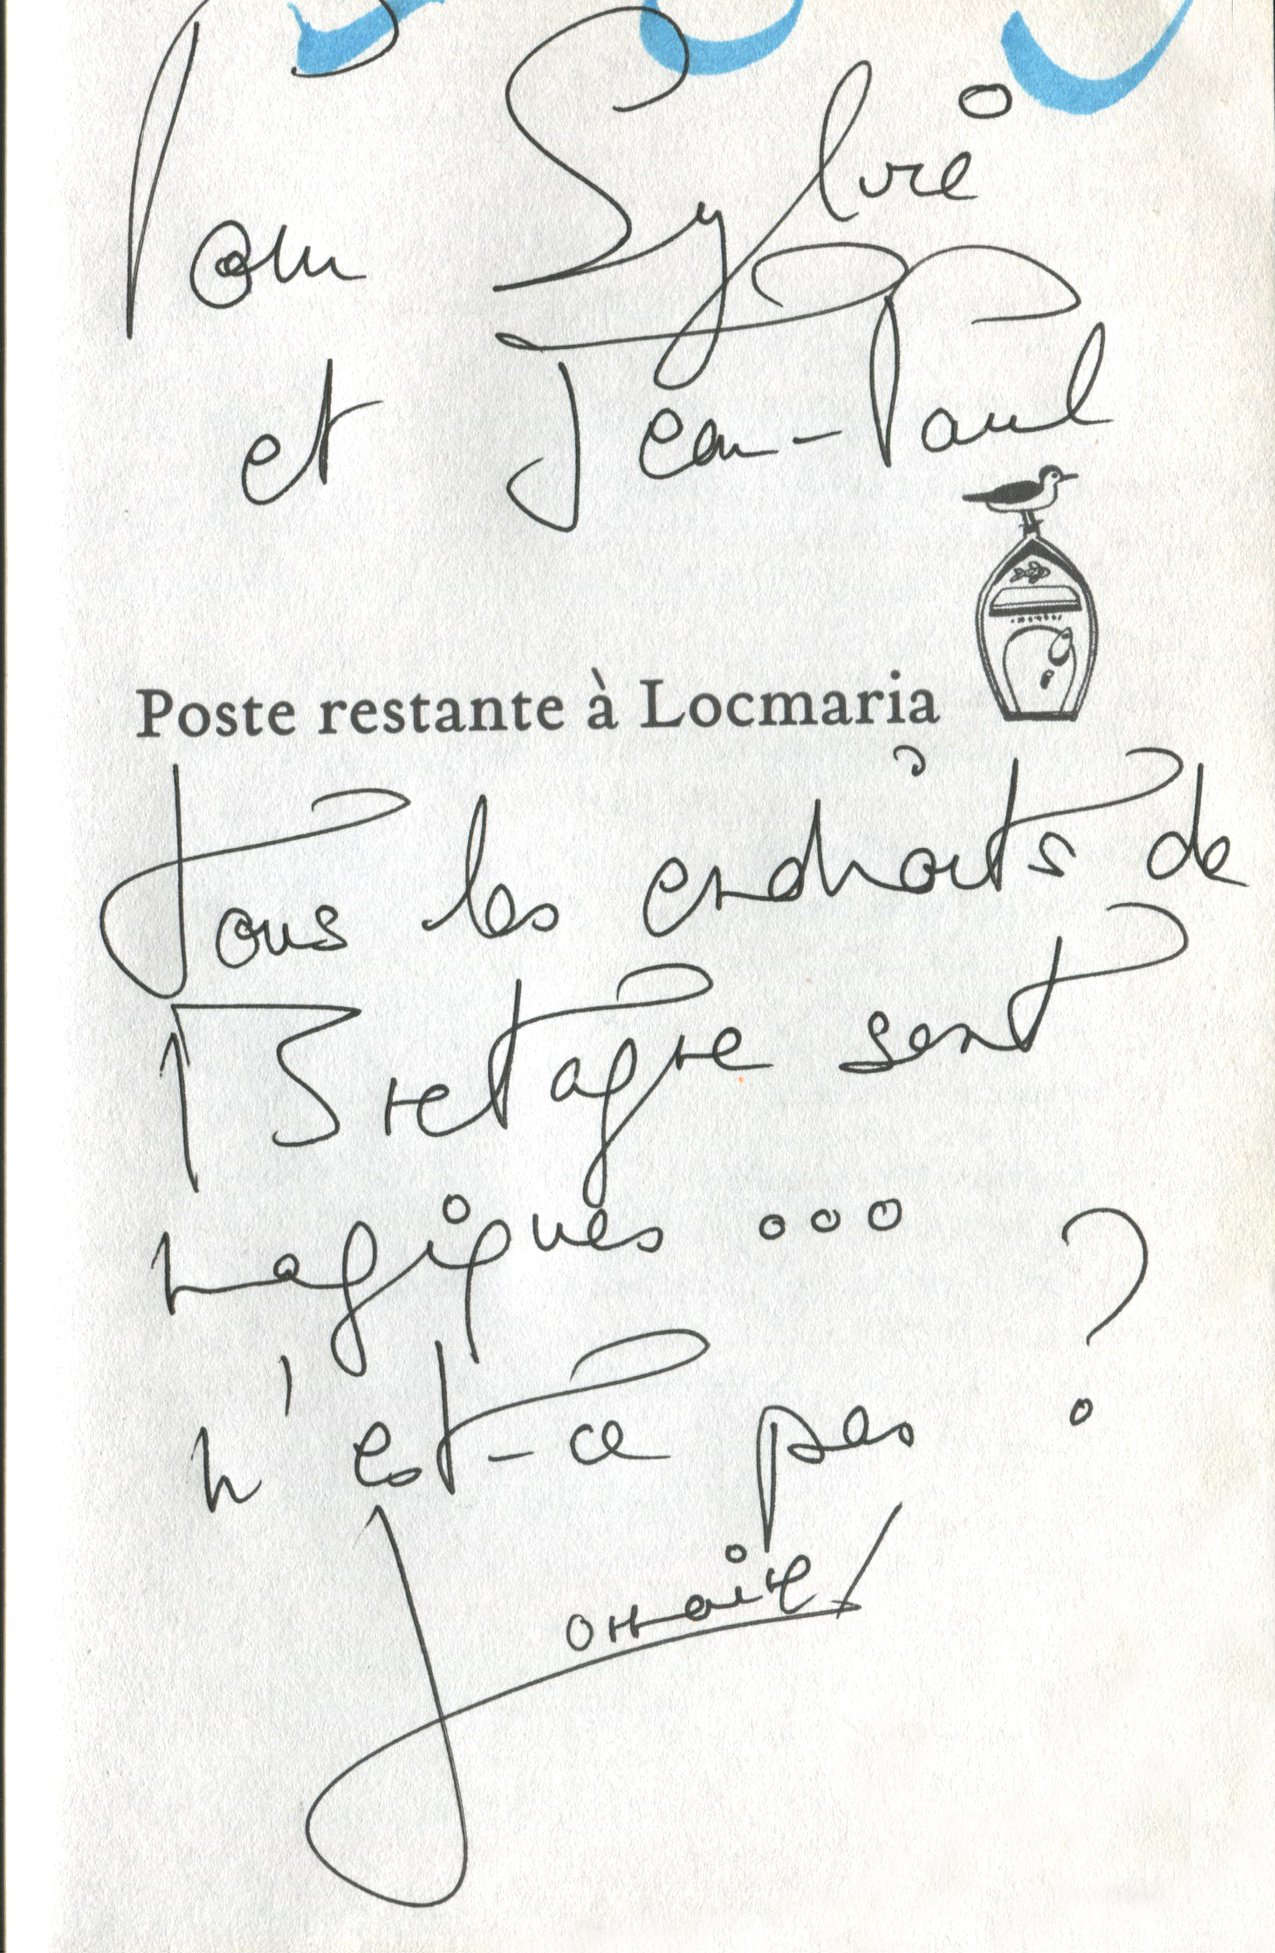 Pour Sylvie
et Jean-Paul
Poste restante à Locmaria
Tous les endroits de
Bretagne sont
magiques ...
n'est-ce pas ?